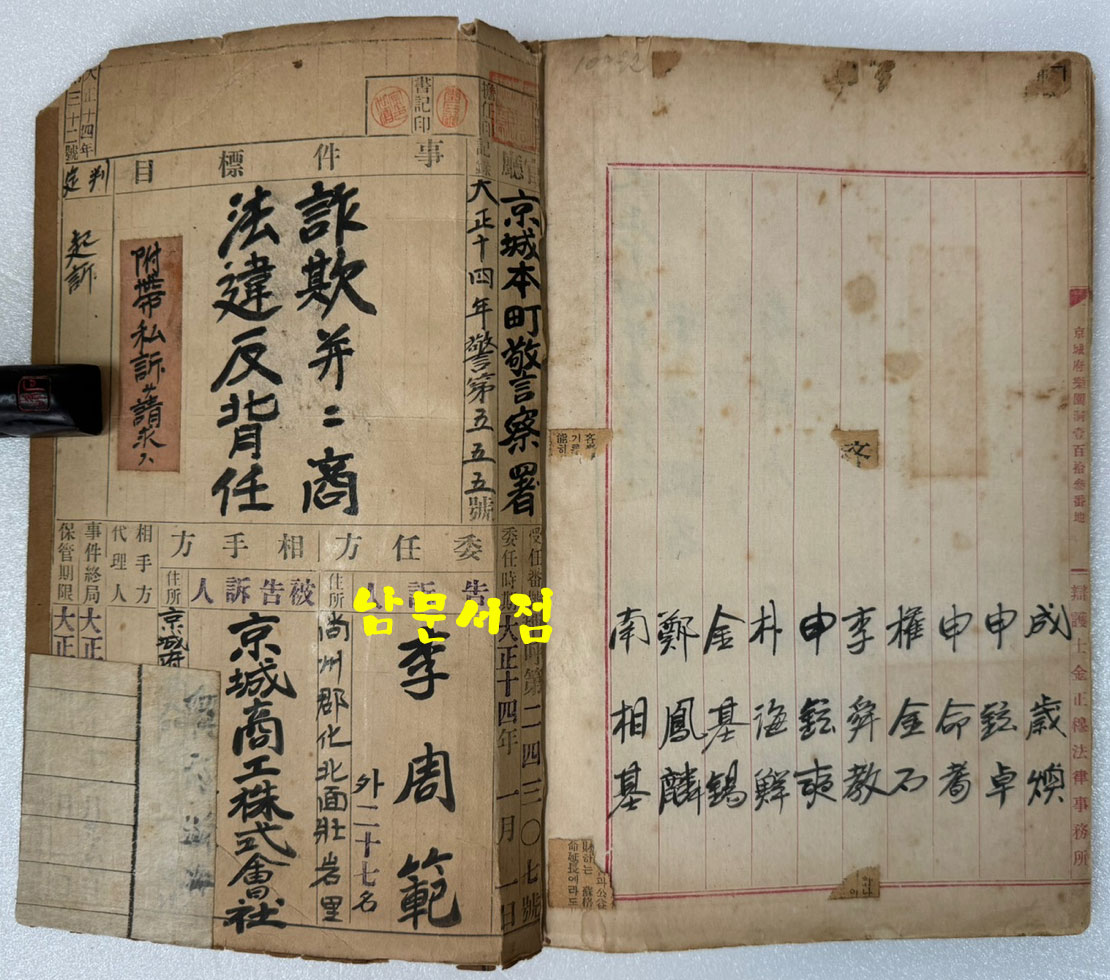 京城本町警察署
大正十四年警第五五五號
書記印
事件標目
詐欺并ニ商
法違反背任
附帶私訴ノ請求ハ
判
起訴
大正十四年
委任方
相手方
告訴人
李周範
外二十七名
住所
尚州郡化北面壯岩里
被告訴人
京城商工株式會社
住所
京城府
相手方
代理人
事件終局
大正
保管期限
大正
第二四三〇七號
大正十四年一月一日
남문서점
成歲煥
申鉉卓
申命耉
權金石
李舜敎
申鉉奭
朴海鮮
金基錫
鄭鳳麟
南相基
辯護士金正穆法律事務所